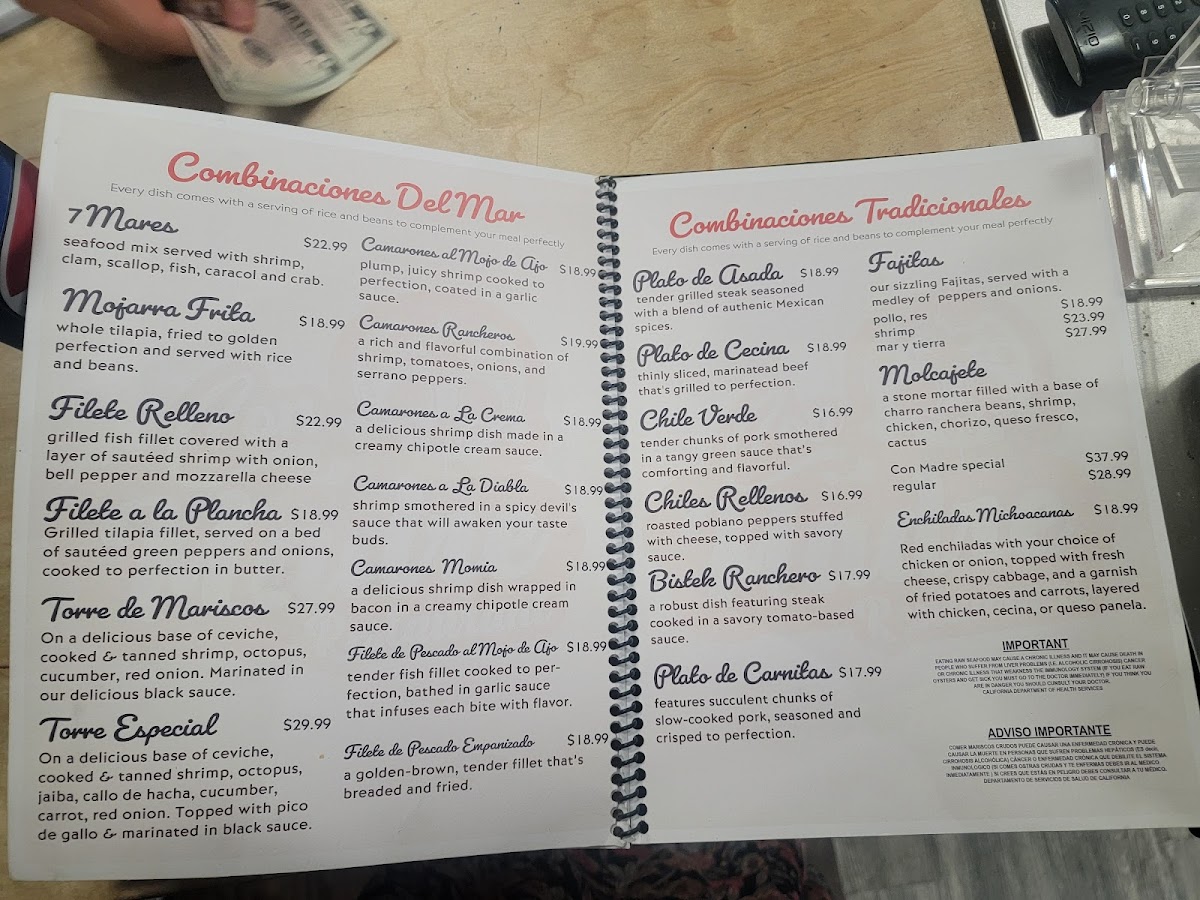 Combinaciones Del Mar
Every dish comes with a serving of rice and beans to complement your meal perfectly
7 Mares $22.99
seafood mix served with shrimp,
clam, scallop, fish, caracol and crab.
Mojarra Frita $18.99
whole tilapia, fried to golden
perfection and served with rice
and beans.
Filete Relleno $22.99
grilled fish fillet covered with a
layer of sautéed shrimp with onion,
bell pepper and mozzarella cheese
Filete a la Plancha $18.99
Grilled tilapia fillet, served on a bed
of sautéed green peppers and onions,
cooked to perfection in butter.
Torre de Mariscos $27.99
On a delicious base of ceviche,
cooked & tanned shrimp, octopus,
cucumber, red onion. Marinated in
our delicious black sauce.
Torre Especial $29.99
On a delicious base of ceviche,
cooked & tanned shrimp, octopus,
jaiba, callo de hacha, cucumber,
carrot, red onion. Topped with pico
de gallo & marinated in black sauce.
Camarones al Mojo de Ajo $18.99
plump, juicy shrimp cooked to
perfection, coated in a garlic
sauce.
Camarones Rancheros $19.99
a rich and flavorful combination of
shrimp, tomatoes, onions, and
serrano peppers.
Camarones a La Crema $18.99
a delicious shrimp dish made in a
creamy chipotle cream sauce.
Camarones a La Diabla $18.99
shrimp smothered in a spicy devil's
sauce that will awaken your taste
buds.
Camarones Momia $18.99
a delicious shrimp dish wrapped in
bacon in a creamy chipotle cream
sauce.
Filete de Pescado al Mojo de Ajo $18.99
tender fish fillet cooked to per-
fection, bathed in garlic sauce
that infuses each bite with flavor.
Filete de Pescado Empanizado $18.99
a golden-brown, tender fillet that's
breaded and fried.
Combinaciones Tradicionales
Every dish comes with a serving of rice and beans to complement your meal perfectly
Plato de Asada $18.99
tender grilled steak seasoned
with a blend of authenic Mexican
spices.
Plato de Cecina $18.99
thinly sliced, marinatead beef
that's grilled to perfection.
Chile Verde $16.99
tender chunks of pork smothered
in a tangy green sauce that's
comforting and flavorful.
Chiles Rellenos $16.99
roasted poblano peppers stuffed
with cheese, topped with savory
sauce.
Bistek Ranchero $17.99
a robust dish featuring steak
cooked in a savory tomato-based
sauce.
Plato de Carnitas $17.99
features succulent chunks of
slow-cooked pork, seasoned and
crisped to perfection.
Fajitas
our sizzling Fajitas, served with a
medley of peppers and onions.
pollo, res $18.99
shrimp $23.99
mar y tierra $27.99
Molcajete
a stone mortar filled with a base of
charro ranchera beans, shrimp,
chicken, chorizo, queso fresco,
cactus
Con Madre special $37.99
regular $28.99
Enchiladas Michoacanas $18.99
Red enchiladas with your choice of
chicken or onion, topped with fresh
cheese, crispy cabbage, and a garnish
of fried potatoes and carrots, layered
with chicken, cecina, or queso panela.
IMPORTANT
EATING RAW SEAFOOD MAY CAUSE A CHRONIC ILLNESS AND IT MAY CAUSE DEATH IN
PEOPLE WHO SUFFER FROM LIVER PROBLEMS (I.E. ALCOHOLIC CIRRHOSIS) CANCER
OR CHRONIC ILLNESS THAT WEAKNESS THE IMMUNOLOGY SYSTEM (IF YOU EAT RAW
OYSTERS AND GET SICK YOU MUST GO TO THE DOCTOR IMMEDIATELY) IF YOU THINK YOU
ARE IN DANGER YOU SHOULD CONSULT YOUR DOCTOR.
CALIFORNIA DEPARTMENT OF HEALTH SERVICES
ADVISO IMPORTANTE
COMER MARISCOS CRUDOS PUEDE CAUSAR UNA ENFERMEDAD CRÓNICA Y PUEDE
CAUSAR LA MUERTE EN PERSONAS QUE SUFREN PROBLEMAS HEPÁTICOS (ES decir,
CIRRHOSIS ALCOHÓLICA) CÁNCER O ENFERMEDAD CRÓNICA QUE DEBILITE EL SISTEMA
INMUNOLOGICO (SI COMES OSTRAS CRUDAS Y TE ENFERMAS DEBES IR AL MEDICO
INMEDIATAMENTE ) SI CREES QUE ESTÁS EN PELIGRO DEBES CONSULTAR A TU MÉDICO.
DEPARTAMENTO DE SERVICIOS DE SALUD DE CALIFORNIA
VIZIO